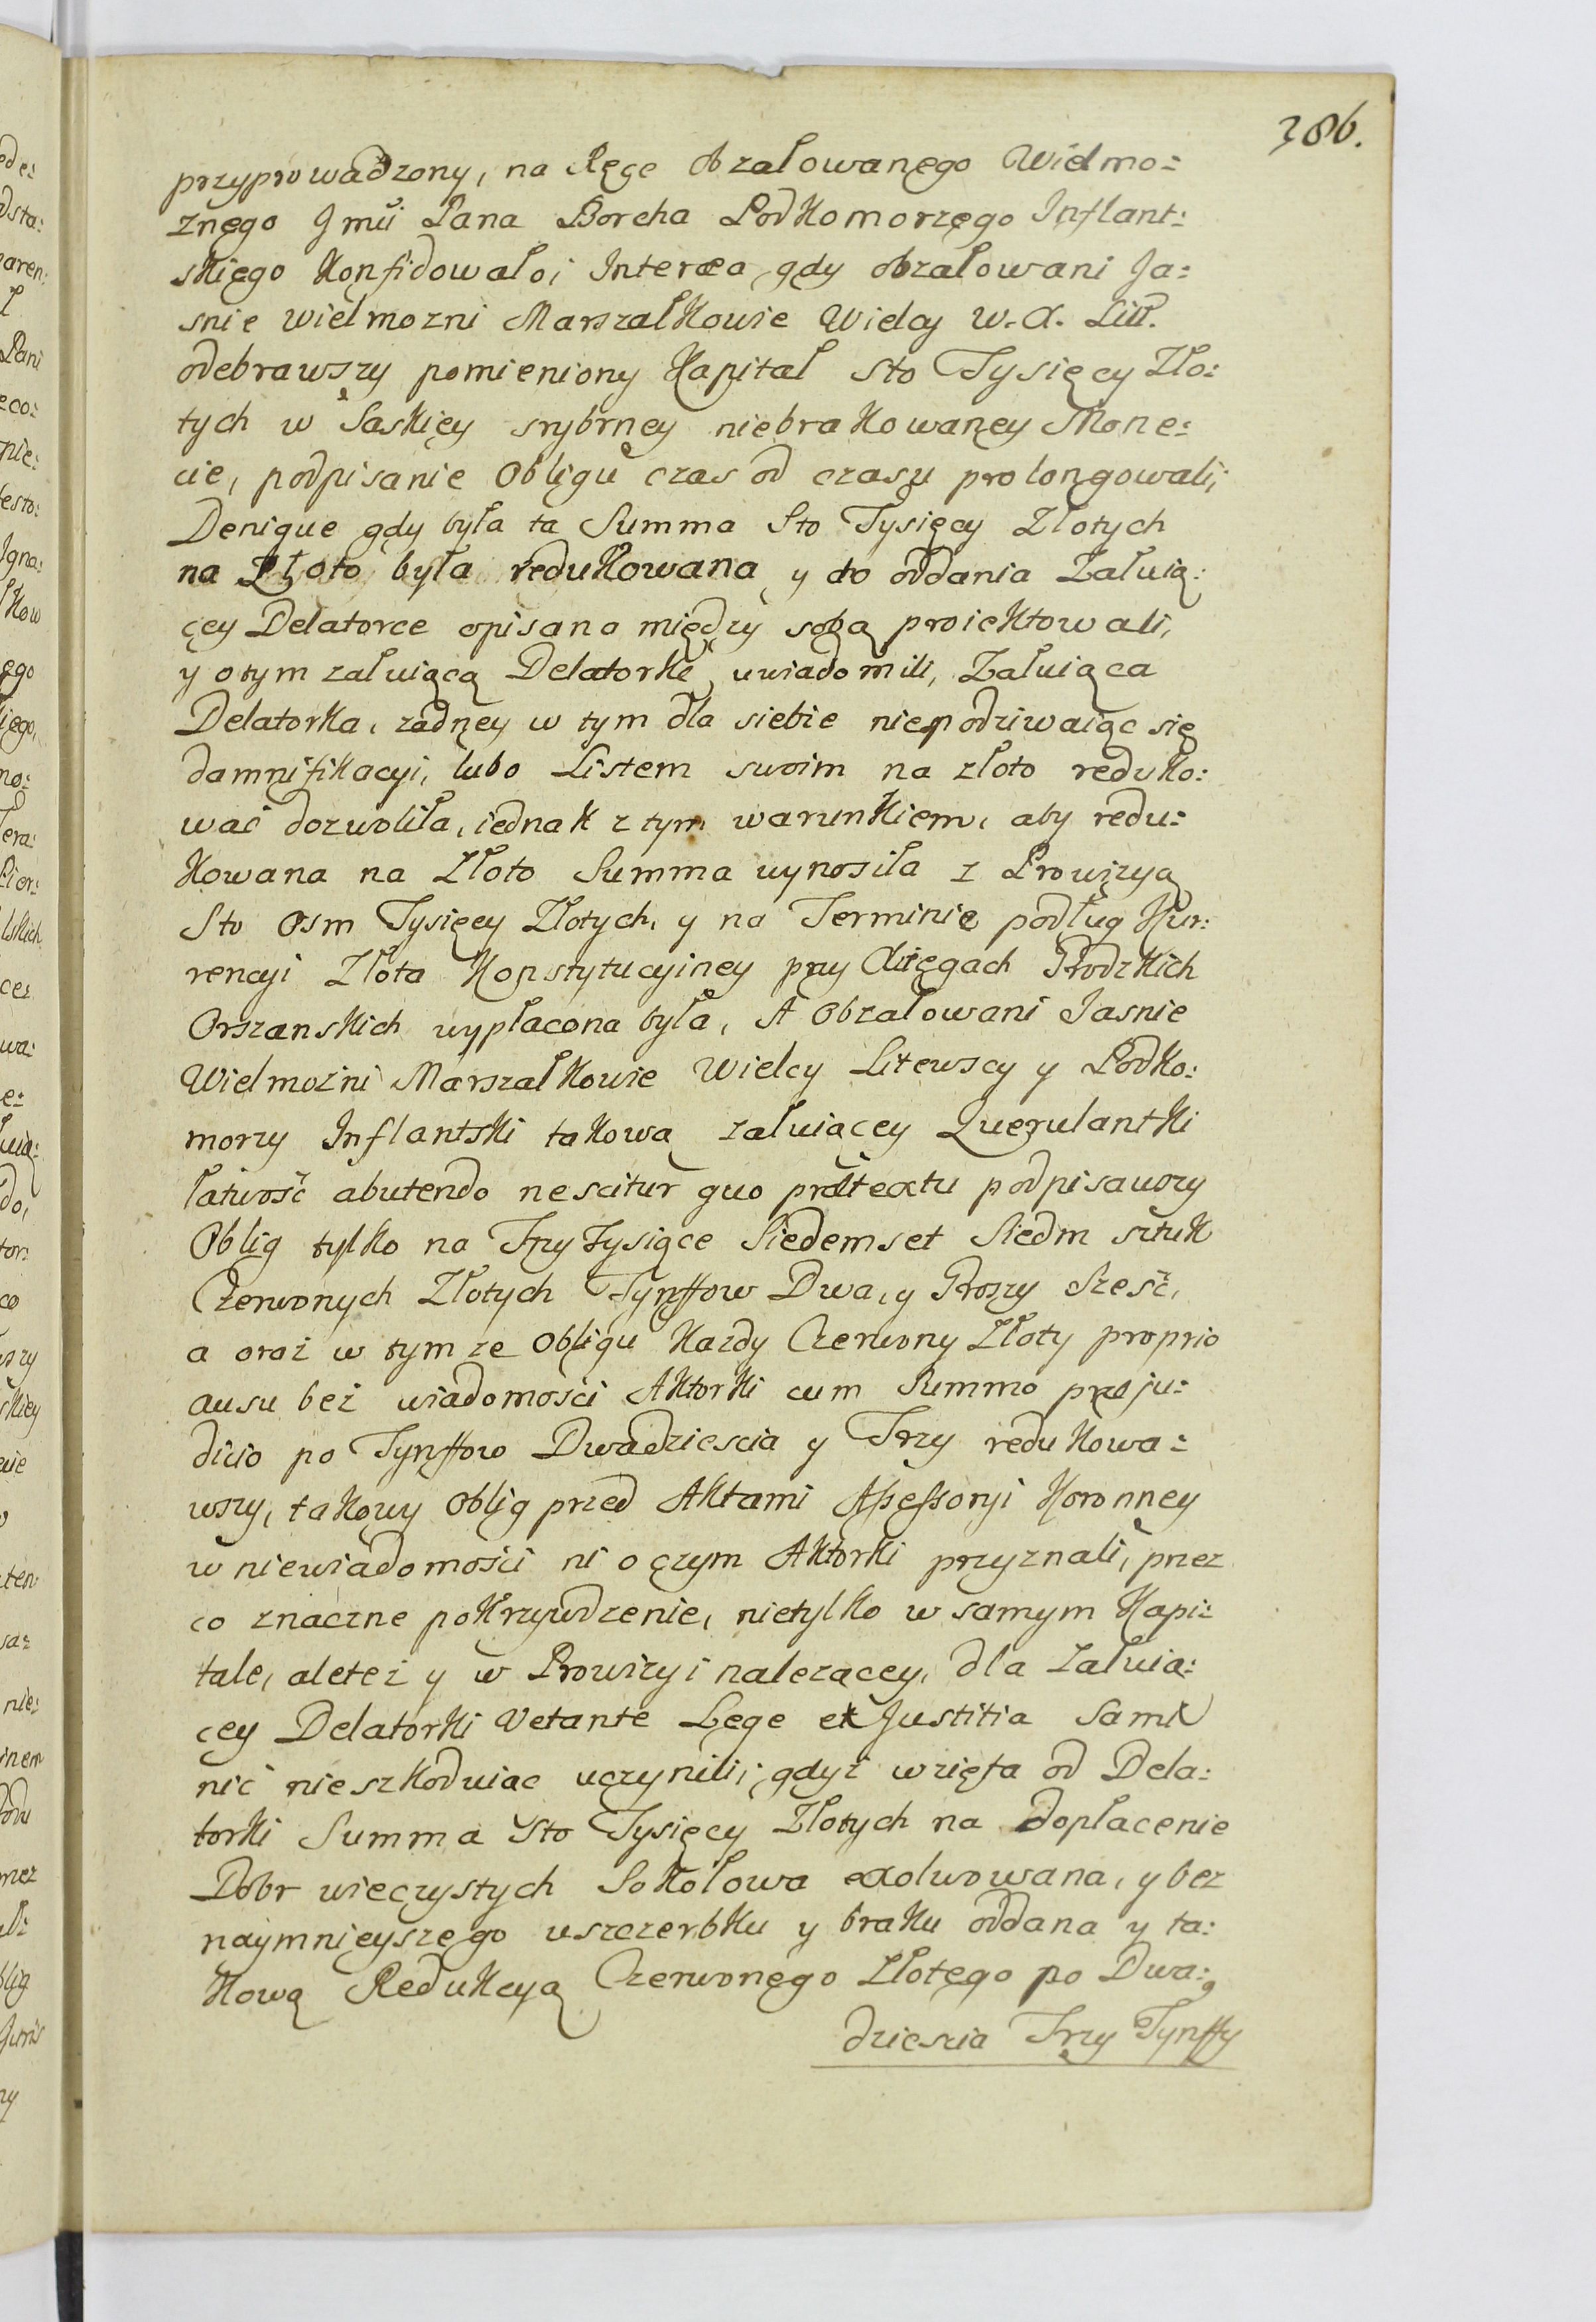 386.
przyprowadzony, na Ręce obzałowanego Wielmo:
znego Jmći Pana Borcha Podkomorzego Inflant:
skiego Konfidowało; Interea gdy obzałowani Ja:
snie wielmozni Marszałkowie Wielcy W. X. Litt.
odebrawszy pomieniony Kapitał Sto Tysięcy Zło:
tych w Saskiey srybrney niebrakowaney Mone:
cie, podpisanie Obligu czas od czasu prolongowali;
Denique gdy była ta Summa Sto Tysięcy Złotych
na Złoto była redukowana y do oddania Załuią:
cey Delatorce opisana między sobą proiektowali,
y o tym załuiącą Delatorkę uwiadomili, Załuiąca
Delatorka, zadney w tym dla siebie niespodziwaiąc się
damnifikacyi, lubo Listem swoim na złoto reduko:
wać dozwoliła, iednak z tym warunkiem, aby redu:
kowana na Złoto Summa wynosiła z Prowizyą
Sto Osm Tysięcy Złotych, y na Terminie podług Kur:
rencyi Złota Konstytucyiney przy Xięgach Grodzkich
Orszanskich wypłacona była, A Obzałowani Jasnie
Wielmożni Marszałkowie Wielcy Litewscy y Podko:
morzy Inflantski takową załuiącey Querulantki
łatwość abutendo nescitur quo prætextu podpisawszy
Oblig tylko na Trzy Tysiące Siedemset Siedm sztuk
Czerwonych Złotych Tynffow Dwa, y Groszy Sześć,
a oraz w tym ze Obligu Kazdy Czerwony Złoty proprio
ausu bez wiadomości Aktorki cum Summo præju:
dicio po Tynffow Dwadziescia y Trzy redukowa:
wszy, takowy Oblig przed Aktami Assessoryi Koronney
w niewiadomości ni o czym Aktorki przyznali, przez
co znaczne pokrzywdzenie, nietylko w samym Kapi:
tale, aleteż y w Prowizyi nalezącey, dla Załuią:
cey Delatorki Vetante Lege et Justitia Sami
nic nieszkoduiąc uczynili; gdyż wzięta od Dela:
torki Summa Sto Tysięcy Złotych na dopłacenie
Dobr wieczystych Sokołowa exolwowana, y bez
naymnieyszego uszczerbku y braku oddana y ta:
kową Redukcyą Czerwonego Złotego po Dwa:
dziescia Trzy Tynffy